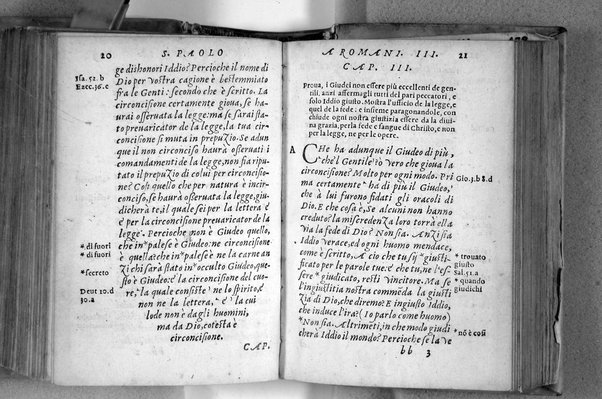 20 S. PAOLO
Isa. 52. b
Ezec. 36. e
ge dishonori Iddio? Percioche il nome di
Dio per vostra cagione è bestemmiato
fra le Genti: secondo che è scritto. La
circoncisione certamente gioua, se ha-
urai osseruata la legge: ma se sarai sta-
to preuaricator de la legge, la tua cir-
concisione si muta in prepuzio. Se adun
que il non circonciso haurà osseruati i
comandamenti de la legge, non fia ripu-
tato il prepuzio di colui per circoncisio
ne? Cosi quello che per natura è incir-
conciso, se haurà osseruata la legge, giu-
dicherà te, il quale sei per la lettera e
per la circoncisione preuaricator de la
legge. Percioche non è Giudeo quello,
* di fuori
che in* palese è Giudeo: ne circoncisione
* di fuori
è quella che in* palese è ne la carne: an
zi chi sarà stato in occulto Giudeo, que-
* secreto
sto è Giudeo: e la circoncisione del cuo-
Deut 10. d
30. a
re, la quale consiste ne lo spirito, e
non ne la lettera, è la cui
lode non è da gli huomini,
ma da Dio, cotesta è
circoncisione.
CAP.
A ROMANI. III. 21
CAP. III.
Proua, i Giudei non essere più eccellenti de gen-
tili, anzi afferma gli tutti del pari peccatori, e
solo Iddio giusto. Mostra l'ufficio de la legge, e
quel de la fede: e insieme paragonandole, con
chiude ogni nostra giustizia essere da la diui-
na grazia, per la fede e sangue di Christo, e non
per la legge, ne per le opere.
A
CHe ha adunque il Giudeo di più,
che'l Gentile? ò vero che gioua la
circoncisione? Molto per ogni modo. Pri
Gio. 3. b 8. d
ma certamente * ha di piu il Giudeo,
che à lui furono fidati gli oracoli di
Dio. E che cosa è, Se alcuni non hanno
creduto? la miscredenza loro torrà ella
via la fede di Dio? Non sia. Anzi sia
Iddio verace, ed ogni huomo mendace,
* trouato
giusto
come è scritto, A cio che tu sij *giusti-
ficato per le parole tue: e che tu, ne l'es-
Sal. 51. a
* quando
giudichi
sere *giudicato, resti vincitore. Ma se
l'ingiustitia nostra commēda la giusti
zia di Dio, che diremo? E ingiusto Iddio,
che induce l'ira? (Io parlo come huomo)
* nō è cosi
*Non sia. Altrimēti, in che modo giudi
cherà Iddio il mondo? Percioche se la ve
bb 3